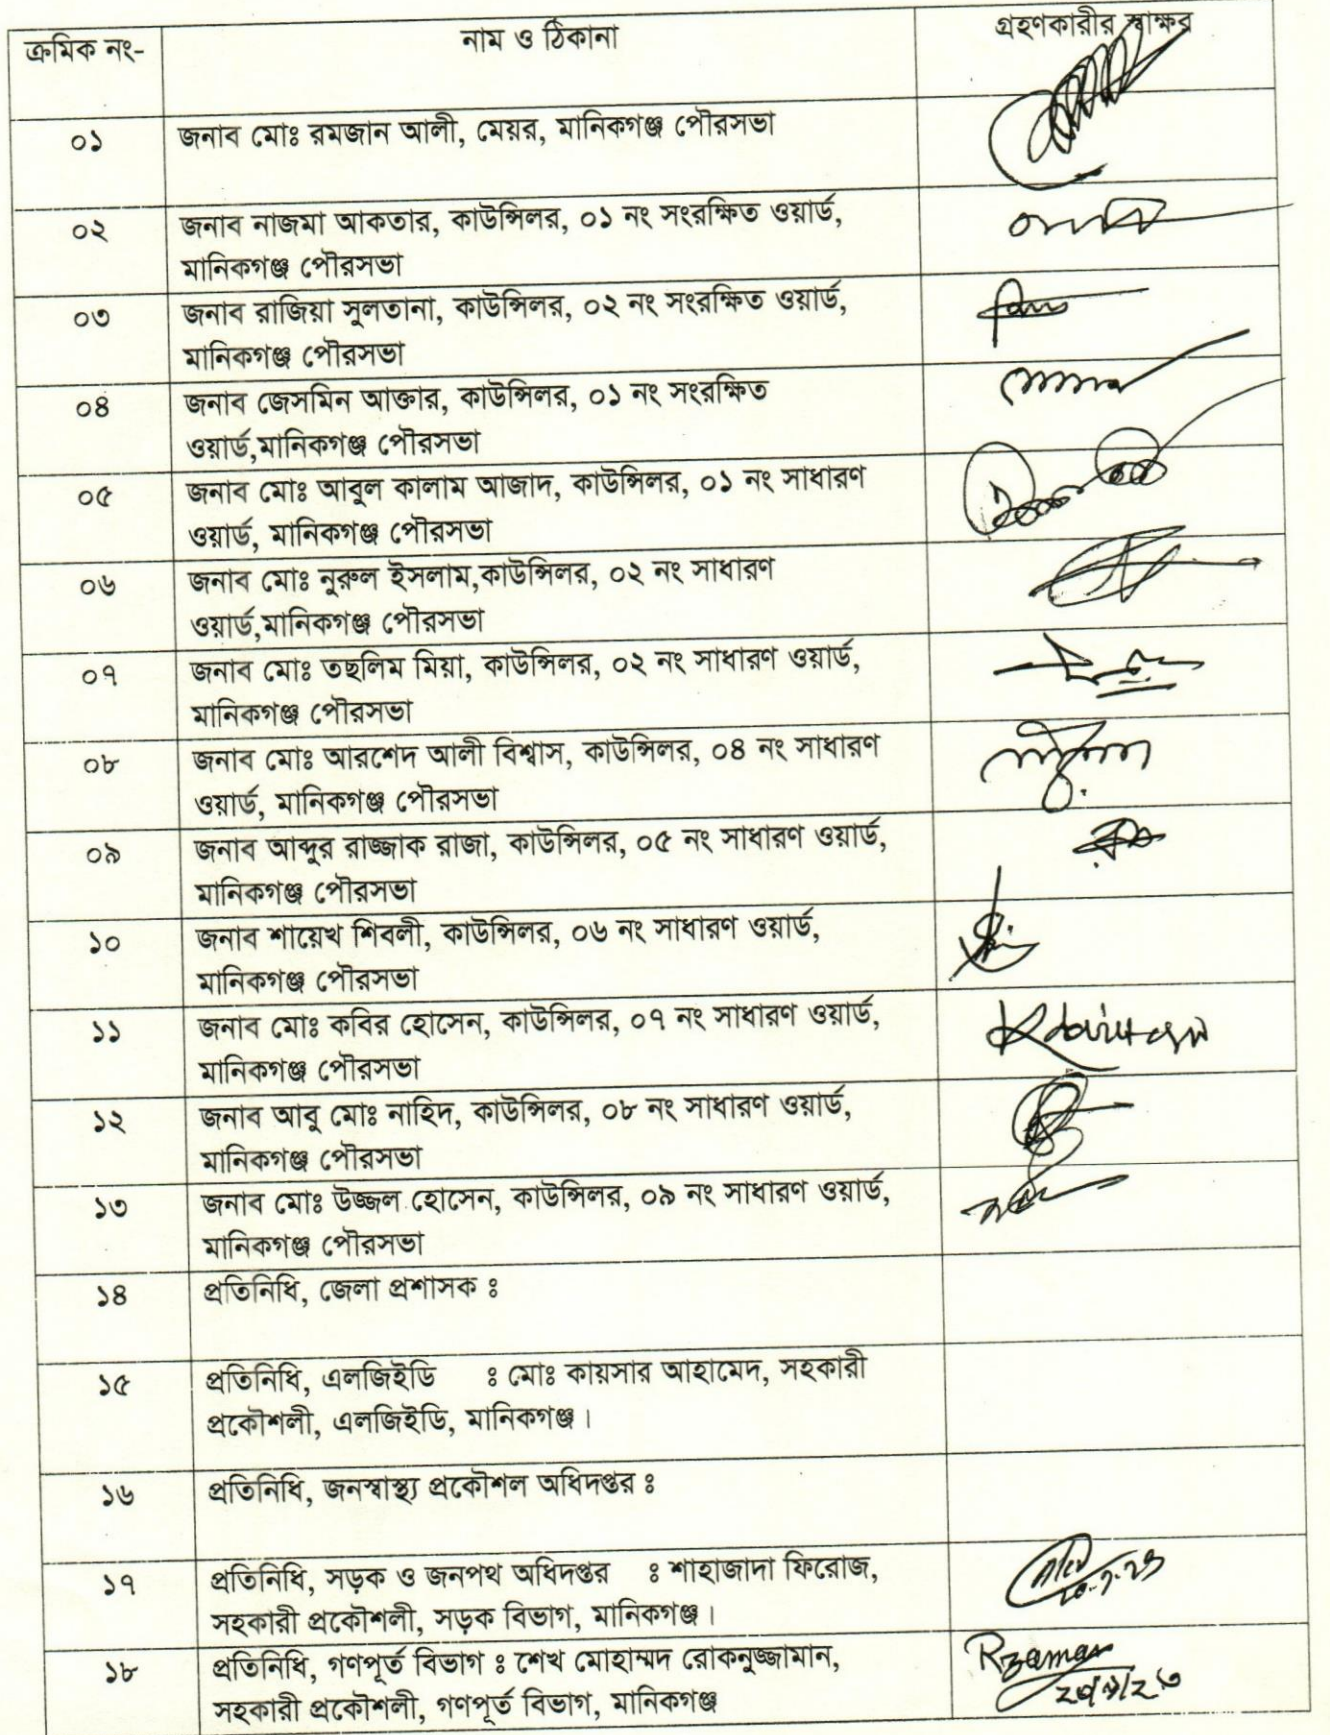 ক্রমিক নং- নাম ও ঠিকানা গ্রহণকারীর স্বাক্ষর
০১ জনাব মোঃ রমজান আলী, মেয়র, মানিকগঞ্জ পৌরসভা
০২ জনাব নাজমা আকতার, কাউন্সিলর, ০১ নং সংরক্ষিত ওয়ার্ড,
মানিকগঞ্জ পৌরসভা
০৩ জনাব রাজিয়া সুলতানা, কাউন্সিলর, ০২ নং সংরক্ষিত ওয়ার্ড,
মানিকগঞ্জ পৌরসভা
০৪ জনাব জেসমিন আক্তার, কাউন্সিলর, ০১ নং সংরক্ষিত
ওয়ার্ড,মানিকগঞ্জ পৌরসভা
০৫ জনাব মোঃ আবুল কালাম আজাদ, কাউন্সিলর, ০১ নং সাধারণ
ওয়ার্ড, মানিকগঞ্জ পৌরসভা
০৬ জনাব মোঃ নুরুল ইসলাম,কাউন্সিলর, ০২ নং সাধারণ
ওয়ার্ড,মানিকগঞ্জ পৌরসভা
০৭ জনাব মোঃ তছলিম মিয়া, কাউন্সিলর, ০২ নং সাধারণ ওয়ার্ড,
মানিকগঞ্জ পৌরসভা
০৮ জনাব মোঃ আরশেদ আলী বিশ্বাস, কাউন্সিলর, ০৪ নং সাধারণ
ওয়ার্ড, মানিকগঞ্জ পৌরসভা
০৯ জনাব আব্দুর রাজ্জাক রাজা, কাউন্সিলর, ০৫ নং সাধারণ ওয়ার্ড,
মানিকগঞ্জ পৌরসভা
১০ জনাব শায়েখ শিবলী, কাউন্সিলর, ০৬ নং সাধারণ ওয়ার্ড,
মানিকগঞ্জ পৌরসভা
১১ জনাব মোঃ কবির হোসেন, কাউন্সিলর, ০৭ নং সাধারণ ওয়ার্ড,
মানিকগঞ্জ পৌরসভা
১২ জনাব আবু মোঃ নাহিদ, কাউন্সিলর, ০৮ নং সাধারণ ওয়ার্ড,
মানিকগঞ্জ পৌরসভা
১৩ জনাব মোঃ উজ্জল হোসেন, কাউন্সিলর, ০৯ নং সাধারণ ওয়ার্ড,
মানিকগঞ্জ পৌরসভা
১৪ প্রতিনিধি, জেলা প্রশাসক ঃ
১৫ প্রতিনিধি, এলজিইডি ঃ মোঃ কায়সার আহামেদ, সহকারী
প্রকৌশলী, এলজিইডি, মানিকগঞ্জ।
১৬ প্রতিনিধি, জনস্বাস্থ্য প্রকৌশল অধিদপ্তর ঃ
১৭ প্রতিনিধি, সড়ক ও জনপথ অধিদপ্তর ঃ শাহাজাদা ফিরোজ,
সহকারী প্রকৌশলী, সড়ক বিভাগ, মানিকগঞ্জ।
১৮ প্রতিনিধি, গণপূর্ত বিভাগ ঃ শেখ মোহাম্মদ রোকনুজ্জামান, Rzaman
সহকারী প্রকৌশলী, গণপূর্ত বিভাগ, মানিকগঞ্জ